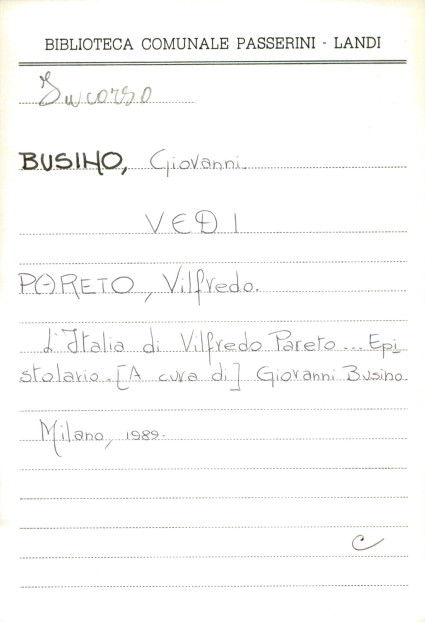 BIBLIOTECA COMUNALE PASSERINI - LANDI
In corso
BUSINO, Giovanni.
VEDI
PARETO, Vilfredo.
L'Italia di Vilfredo Pareto... Epi
stolario. [A cura di] Giovanni Busino.
Milano, 1989.
C